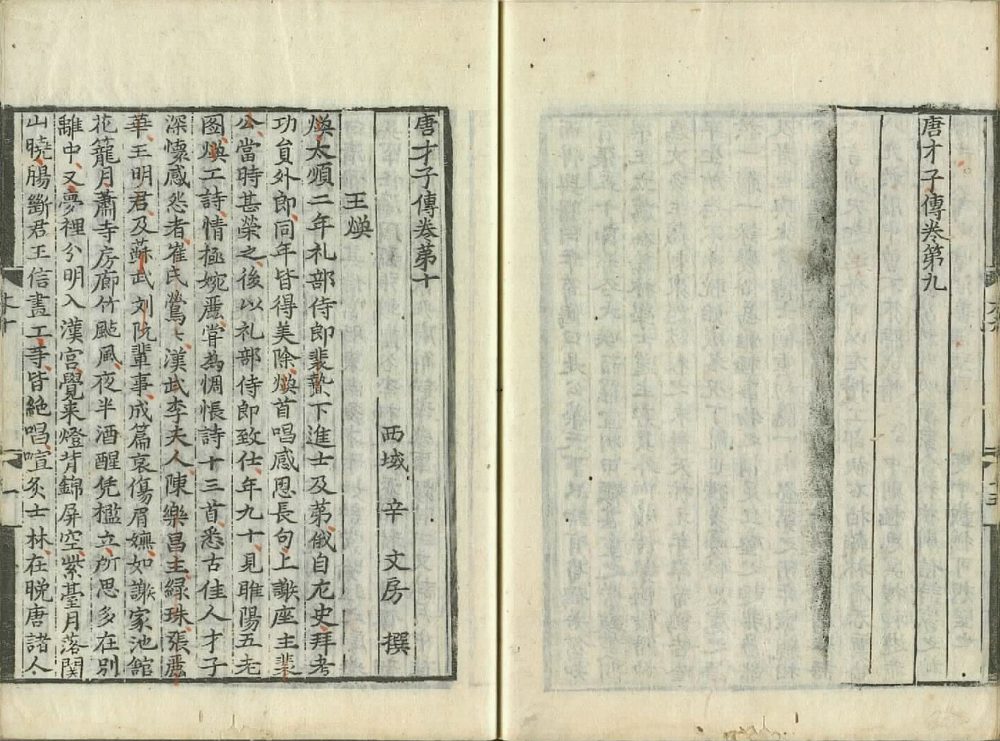 唐才子傳卷第九
唐才子傳卷第十
西域辛文房撰
王煥
煥太順二年礼部侍郎裴贄下進士及苐俄自左史拜考
功貟外郎同年皆得美除煥首唱感恩長句上謝座主裴
公當時甚榮之後以礼部侍郎致仕年九十見睢陽五老
圖煥工詩情極婉麗甞為惆悵詩十三首悉古佳人才子
深懷感怨者崔氏鶯〻漢武李夫人陳樂昌主綠珠張麗
華王明君及蘇武刘阮輩事成篇哀傷眉嫵如謝家池館
花籠月蕭寺房廊竹颭風夜半酒醒凭檻立所思多在別
離中又夢裡分明入漢宮覺来燈背錦屏空紫䑓月落関
山曉膓斷君王信畫工䓁皆絶唱喧炙士林在晚唐諸人